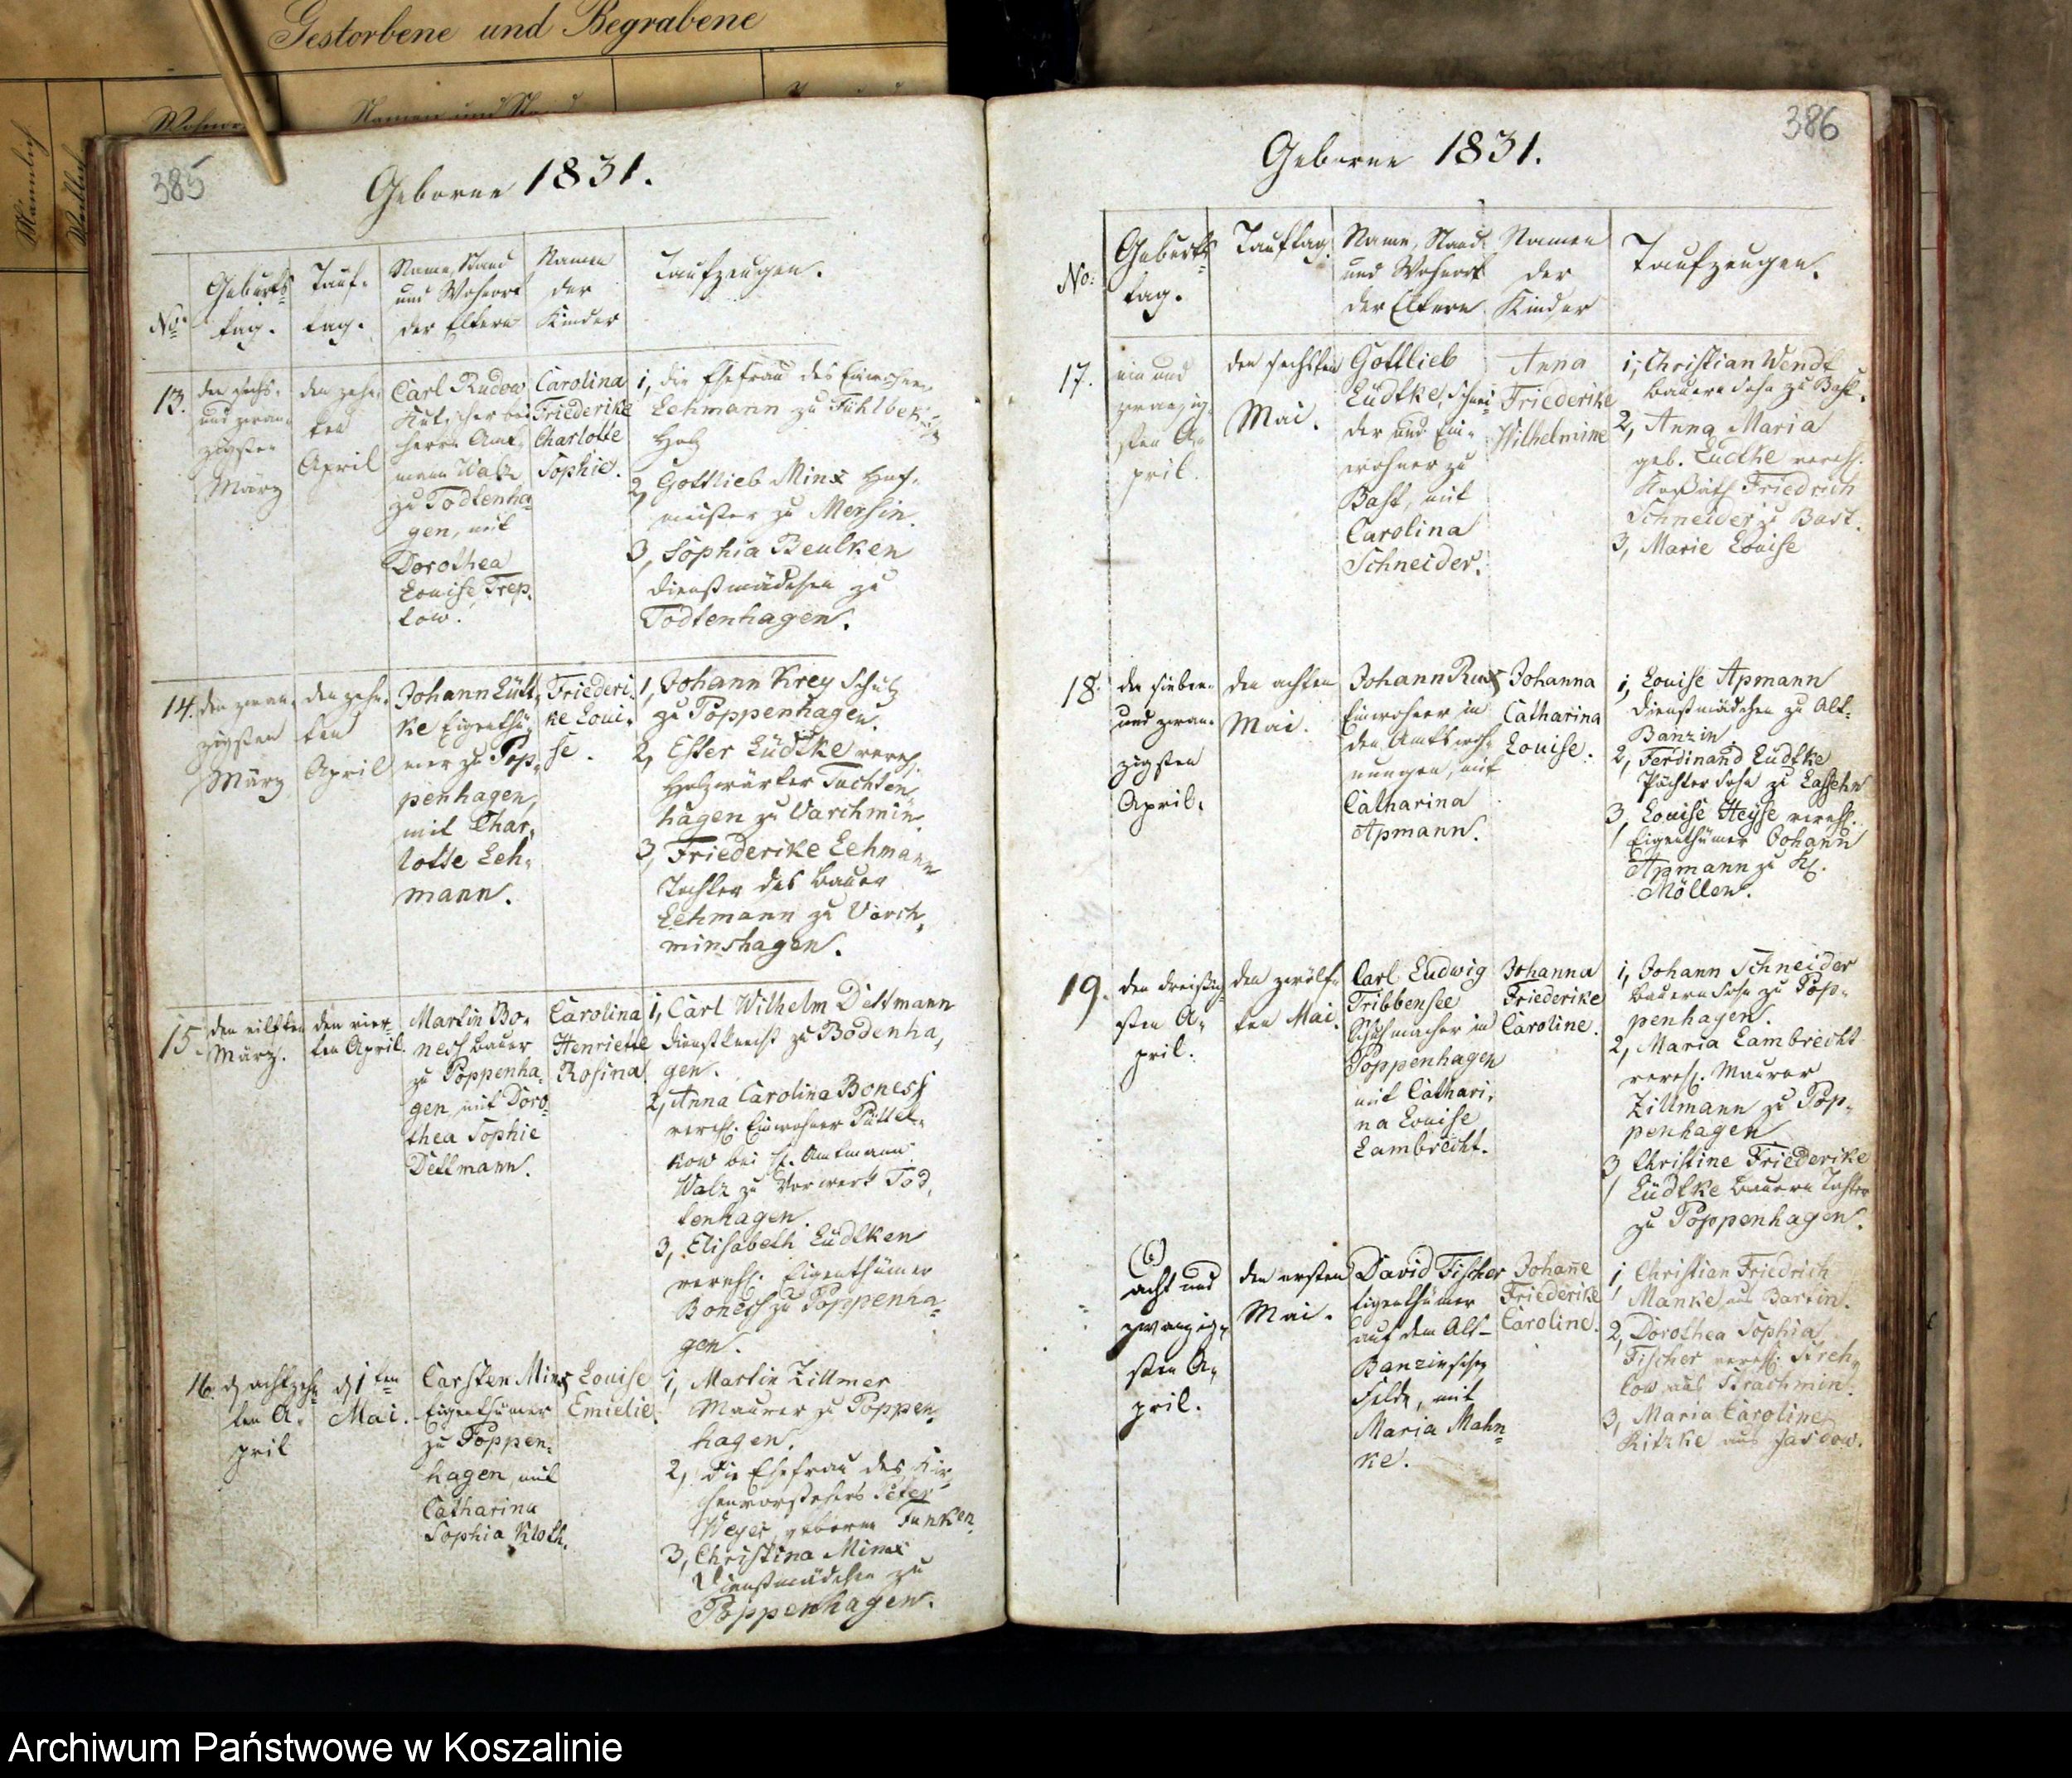 Gestorbene und Begrabene
Männlich
385
Geborne 1831.
No.
Geburts-
tag.
Tauf-
tag.
Name, Stand
und Wohnort
der Eltern
Namen
der
Kinder
Taufzeugen.
13.
den sechs-
und zwan-
zigsten
März
den zehn-
ten
April
Carl Rudow
Kutscher bei
Herrn Amt-
mann Walz
zu Todtenha-
gen, mit
Dorothea
Louise Trep-
tow.
Carolina
Friederike
Charlotte
Sophie.
1, die Ehefrau des Einwohner
Lehmann zu
Holz
2, Gottlieb Minx Hof-
meister zu Mersin.
3, Sophia Beulken
Dienstmädchen zu
Todtenhagen.
14.
den zwan-
zigsten
März
den zehn-
ten
April
Johann Lütt-
ke Eigenthü-
mer zu Pop-
penhagen,
mit Char-
lotte Leh-
mann.
Friederi-
ke Loui-
se.
1, Johann Krey Schulz
zu Poppenhagen.
2, Ester Lüdtke verehl.
Holzwärter Tachten-
hagen zu Varchmin.
3, Friederike Lehmann
Tochter des Bauer
Lehmann zu Varch-
minshagen.
15.
den eilften
März.
den vier-
ten April.
Martin Bo-
ness Bauer
zu Poppenha-
gen, mit Doro-
thea Sophie
Dettmann.
Carolina
Henriette
Rosina
1, Carl Wilhelm Dettmann
Dienstknecht zu Bodenha-
gen.
2, Anna Carolina Boness
verehl. Einwohner
kow bei H. Amtmann
Walz zu Vorwerk Tod-
tenhagen.
3, Elisabeth Lüdtken
verehl. Eigenthümer
Boness zu Poppenha-
gen.
16.
d. achtzehn-
ten A-
pril
d. 1ten
Mai.
Carsten Minx
Eigenthümer
zu Poppen-
hagen mit
Catharina
Sophia Kloth.
Louise
Emielie.
1, Martin Zillmer
Maurer zu Poppen-
hagen.
2, die Ehefrau des Kir-
chenvorstehers Peter
Weyer, geborne Funken.
3, Christina Minx
Dienstmädchen zu
Poppenhagen.
386
Geborne 1831.
No:
Geburts-
tag.
Tauftag.
Name, Stand
und Wohnort
der Eltern
Namen
der
Kinder
Taufzeugen.
17.
ein und
zwanzig-
sten A-
pril.
den sechsten
Mai.
Gottlieb
Lüdtke, Schnei-
der und Ein-
wohner zu
Bast, mit
Carolina
Schneider.
Anna
Friederike
Wilhelmine
1, Christian Wendt
Bauern Sohn zu Bast.
2, Anna Maria
geb. Ludtke verehl.
Kossäth Friedrich
Schneider zu Bast.
3, Marie Louise
18.
den sieben-
und zwan-
zigsten
April.
den achten
Mai.
Johann
Einwohner in
den Amtswoh-
nungen, mit
Catharina
Apmann.
Johanna
Catharina
Louise.
1, Louise Apmann
Dienstmädchen zu Alt-
Banzin
2, Ferdinand Lüdtke
Pächter Sohn zu Lassehn
3, Louise Heyse verehl.
Eigenthümer Johann
Apmann zu Kl.
Möllen.
19.
den dreißig-
sten A-
pril.
den zwölf-
ten Mai.
Carl Ludwig
Tribbensee
Schuhmacher in
Poppenhagen
mit Cathari-
na Louise
Lambrecht.
Johanna
Friederike
Caroline.
1, Johann Schneider
Bauern Sohn zu Pop-
penhagen.
2, Maria Lambrecht
verehl. Maurer
Zillmann zu Pop-
penhagen
3, Christine Friederike
Lüdtke Bauern Tochter
zu Poppenhagen.
acht und
zwanzig-
sten A-
pril.
den ersten
Mai.
David Fischer
Eigenthümer
auf dem Alt-
Banzinschen
Felde, mit
Maria Mahn-
ke.
Johan̄e
Friederike
Caroline.
1, Christian Friedrich
Manke aus Bartin.
2, Dorothea Sophia
Fischer verehl. Streh-
low aus Strachmin.
3, Maria Caroline
Ritzke aus Jasdow.
Archiwum Państwowe w Koszalinie